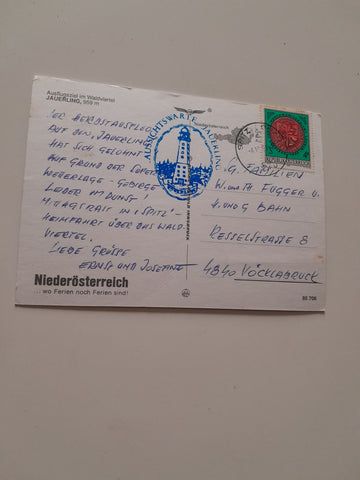 Ausflugsziel im Waldviertel
JAUERLING, 959 m
DER HERBSTAUSFLUG
AUF DEN "JAUERLING"
HAT SICH GELOHNT
AUF GRUND DER
WETTERLAGE - GEBIRGE
LEIDER IM DUNST!
MITTAGSRAST IN "SPITZ" -
HEIMFAHRT ÜBER DAS WALD-
VIERTEL.
LIEBE GRÜSSE
ERNST UND JOSEFINE
Niederösterreich
... wo Ferien noch Ferien sind!
AUSSICHTSWARTE JAUERLING
Niederösterreich
REPUBLIK ÖSTERREICH
G. FAMILIEN
W. UND TH. FUGGER U.
H. UND G. BAHN
RESSELSTRASSE 8
4840 VÖCKLABRUCK